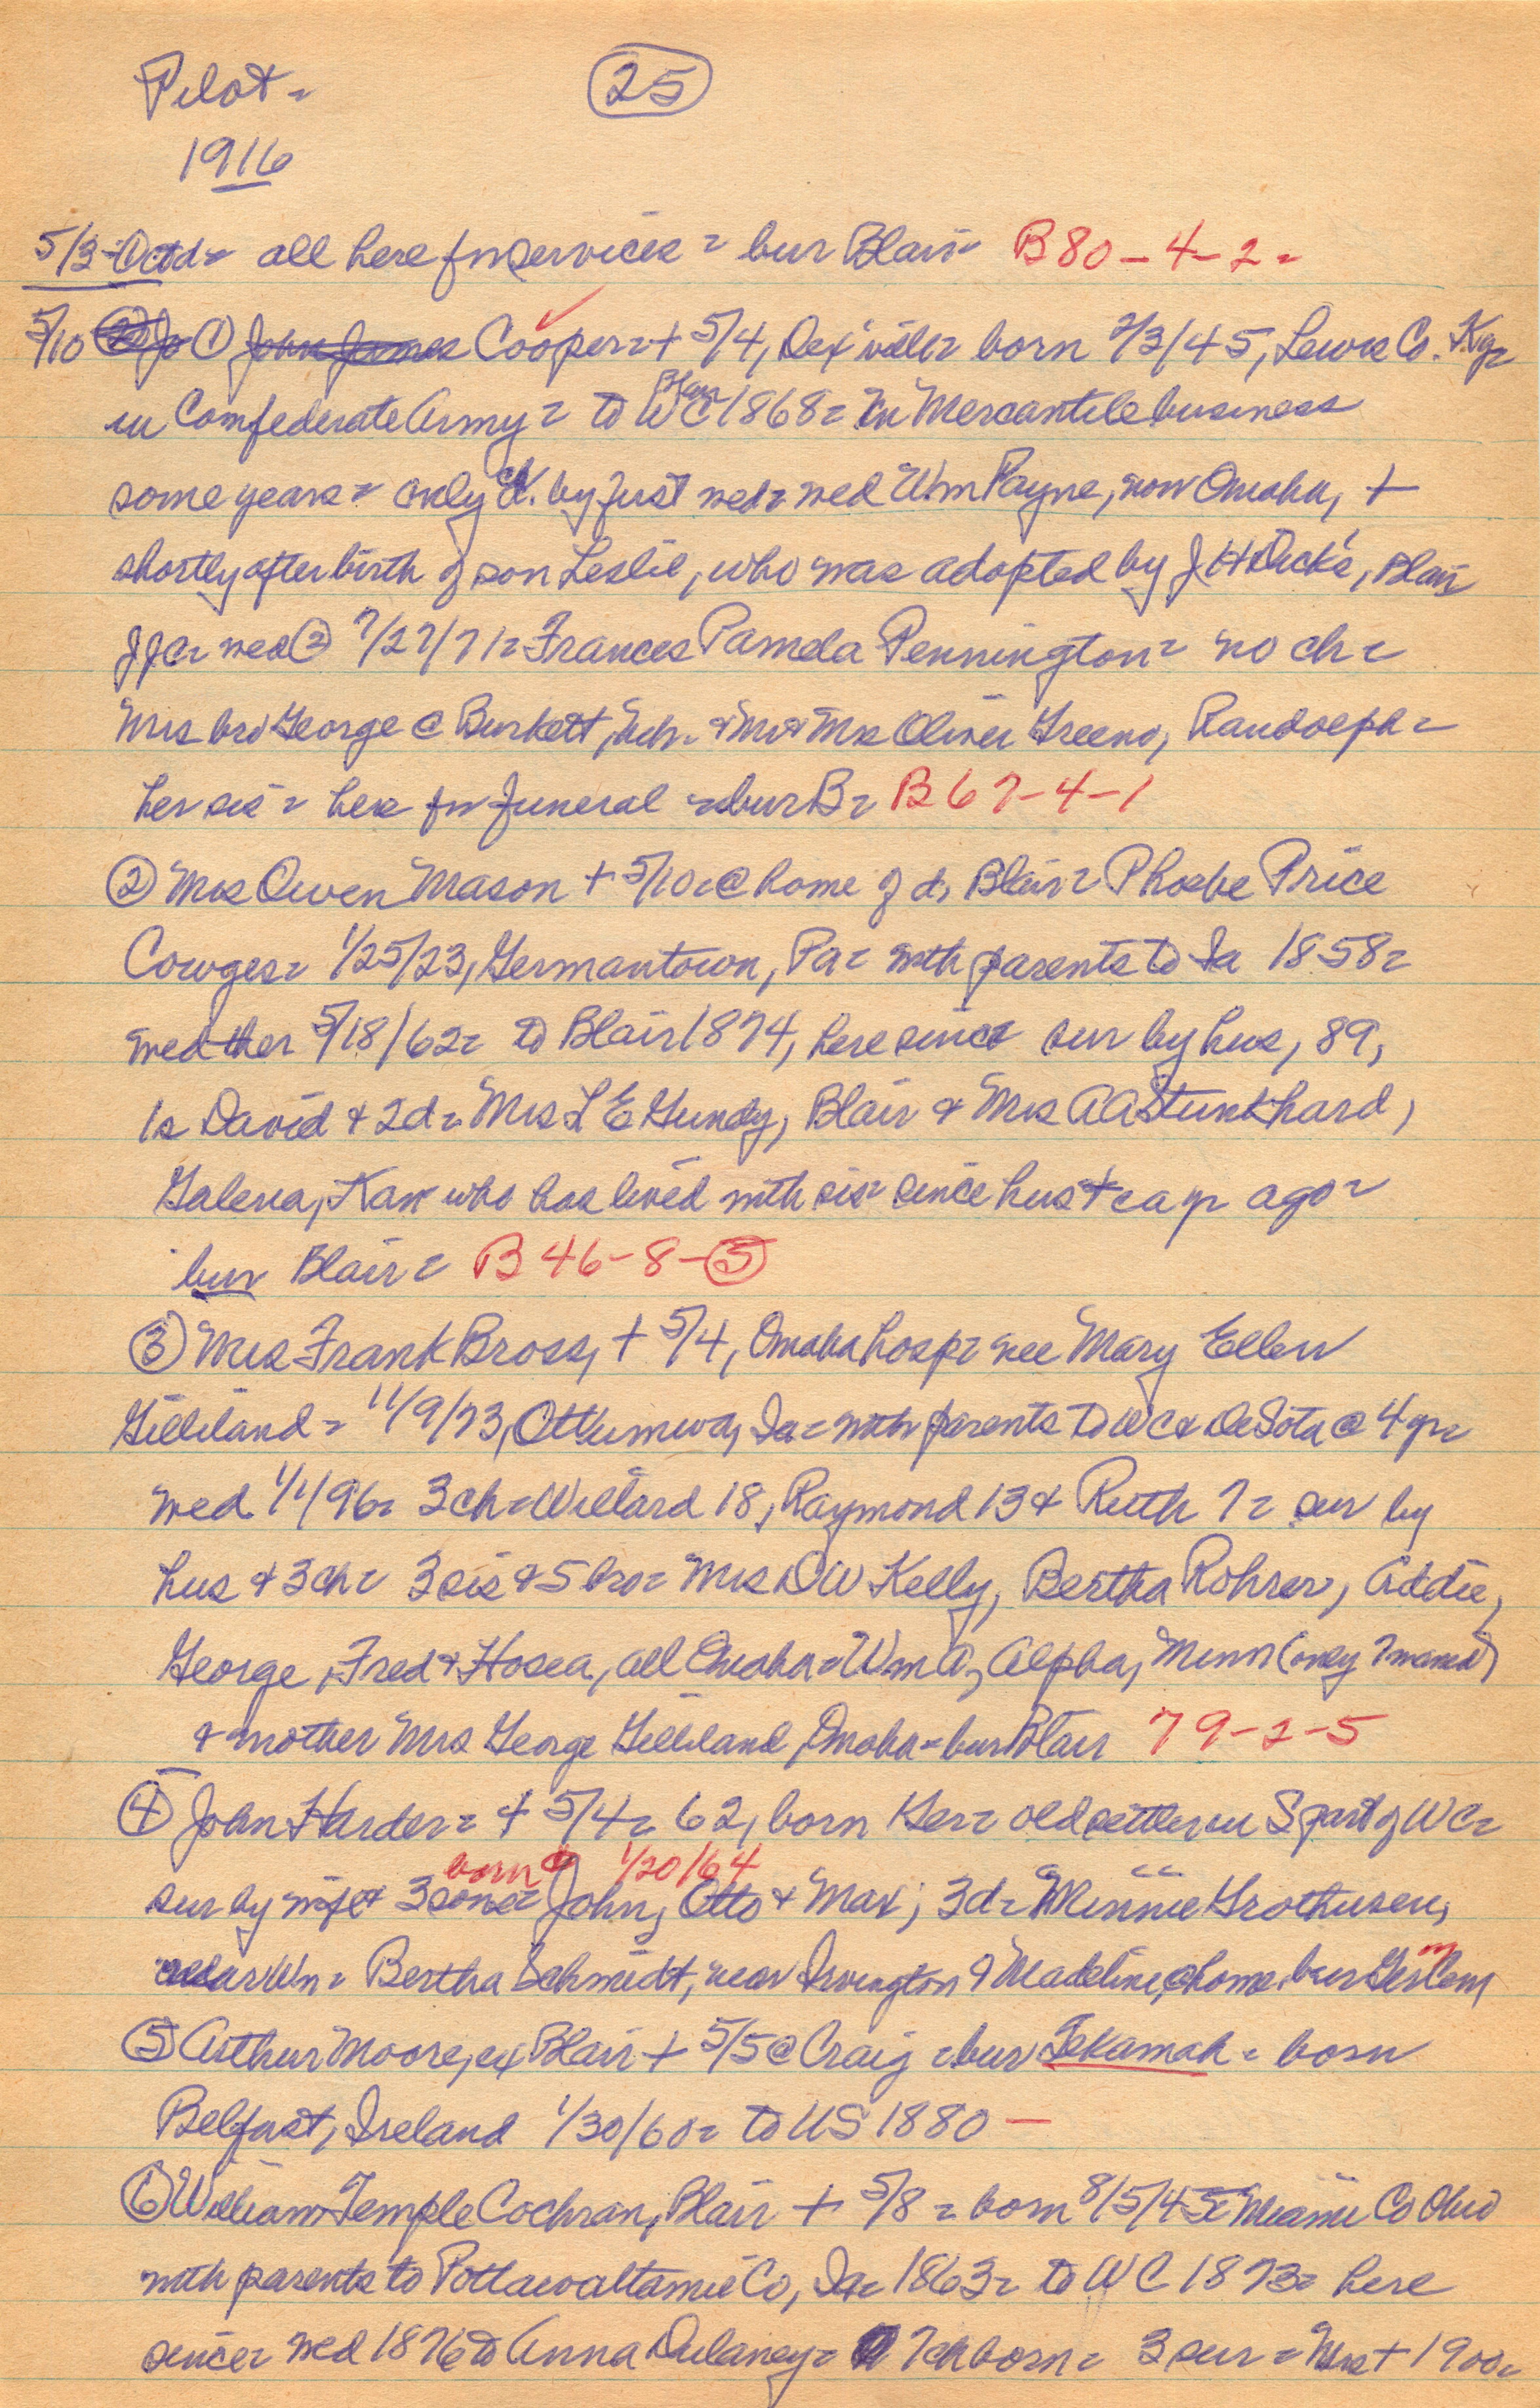 Pilot =
25
1916
5/3 - ① ctd = all here for services = bur Blair = B 80 - 4 - 2 =
5/10 ① John James Cooper = + 5/4, = born 2/3/45, Lewis Co. Ky =
in Confederate Army = to WC Blair 1868 = in Mercantile business
some years = only ch. by first wed = wed Wm Payne, now Omaha, +
shortly after birth of son Leslie, who was adopted by J H Dick's, Blair
JJC = wed ② 7/27/71 = Frances Pamela Pennington = no ch =
Mrs bro George C Burkett, Neb. & Mr & Mrs Oliver Greeno, Randolph =
her sis = here for funeral = bur B = B 67 - 4 - 1
② Mrs Owen Mason + 5/10 = @ home of d, Blair = Phoebe Price
Cowges = 1/25/23, Germantown, Pa = with parents to Ia 1858 =
wed ther 5/18/62 = to Blair 1874, here since sur by hus, 89,
1s David & 2d = Mrs L E Gundy, Blair & Mrs A A Stunkhard,
Galena, Kan who has lived with sis = since hus + ca yr ago =
bur Blair = B 46 - 8 - ⑤
③ Mrs Frank Bross, + 5/4, Omaha hosp = nee Mary Ellen
Gilliland = 11/9/73, Ottumwa, Ia = with parents to WC & DeSota @ 4 yr =
wed 1/1/96 = 3 ch = Willard 18, Raymond 13 & Ruth 7 = sur by
hus & 3 ch = 3 sis & 5 bro = Mrs D W Kelly, Bertha Rohrer, Addie,
George, Fred & Hosea, all Omaha = Wm A, Alpha, Minn (only 7 named)
& mother Mrs George Gilliland, Omaha = bur Blair 79 - 2 - 5
④ John Harder = + 5/4 = 62, born Ger = old settler in S part of WC =
born 1/20/64
sur by wife & 3 sons = John, Otto & Max; 3d = Minnie Grothusen,
near Wn = Bertha Schmidt, near Irvington & Madeline, @ home. bur Ger Cem
⑤ Arthur Moore, ex Blair + 5/5 @ Craig = bur Tekamah = born
Belfast, Ireland 1/30/60 = to US 1880 —
⑥ William Temple Cochran, Blair + 5/8 = born 8/5/45 = Miami Co Ohio
with parents to Pottawattamie Co, Ia = 1863 = to WC 1873 = here
since = wed 1876 to Anna Dulaney = 7 ch born = 3 sur = Mrs + 1900 =